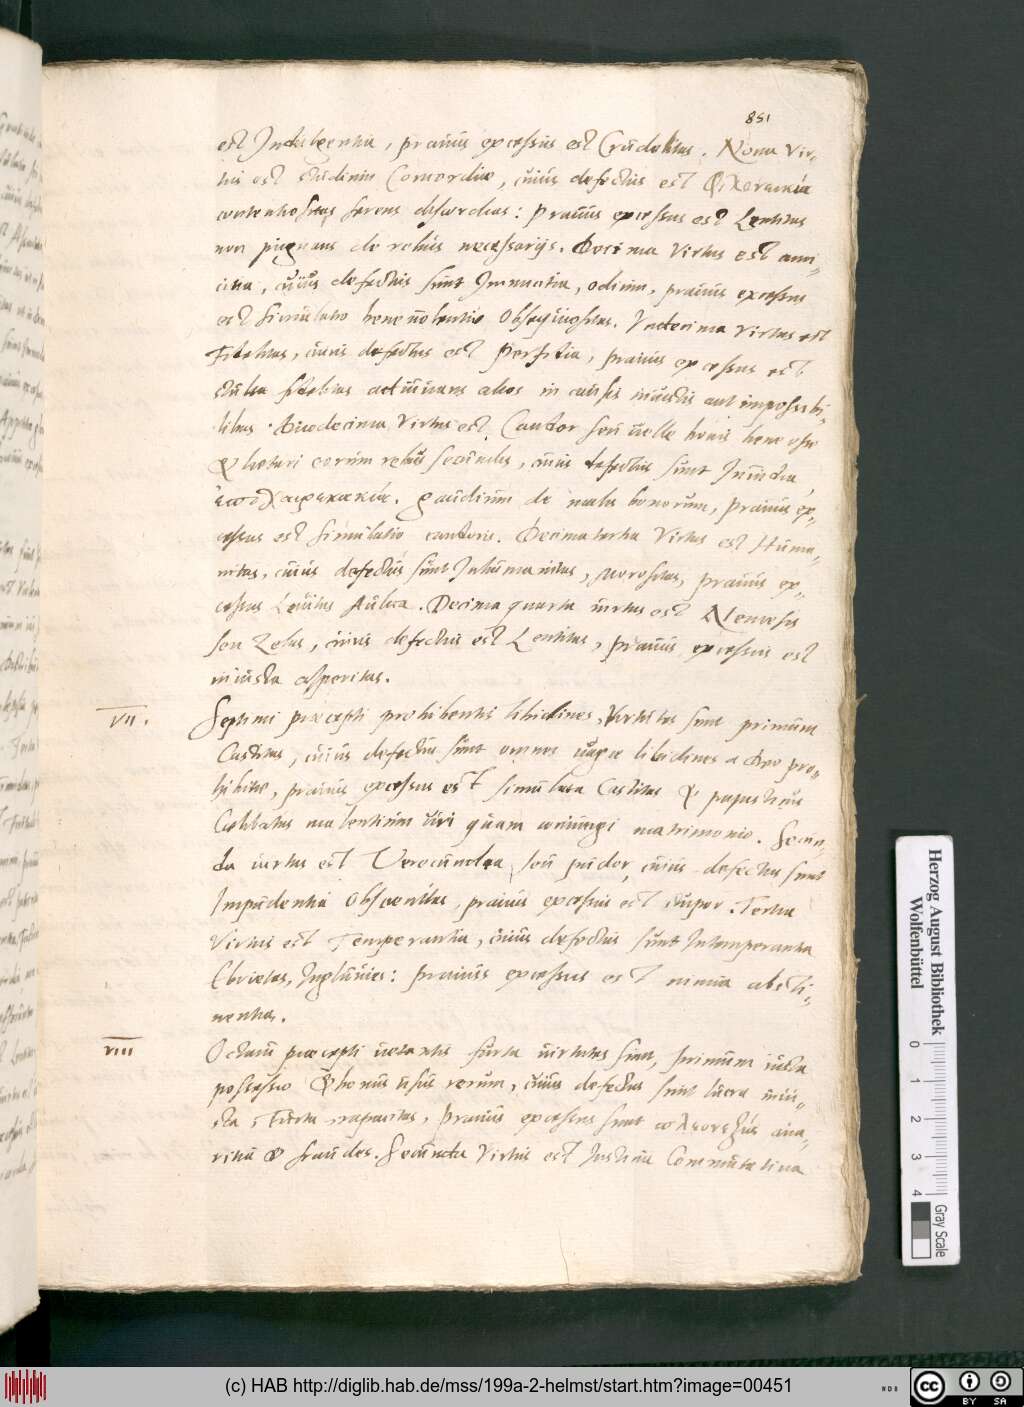 851
est Indulgentia, prauus excessus est Crudelitas. Nona Vir-
tus est studium Concordiae, cuius defectus est
contentiositas serens discordias: Prauus excessus est Lentitas
non pugnans de rebus necessarijs. Decima Virtus est ami-
citia, cuius defectus sunt Inimicitia, odium, prauus excessus
est simulatio beneuolentiae Obsequiositas. Vndecima Virtus est
Fidelitas, cuius defectus est Perfidia, prauus excessus est
stulta sedulitas adiuuans alios in causis iniustis aut impossibi-
libus. Duodecima Virtus est Candor seu uelle bonis bene esse
& laetari eorum rebus secundis, cuius defectus sunt Inuidia,
gaudium de malis bonorum, prauus ex-
cessus est simulatio candoris. Decima tertia Virtus est Huma-
nitas, cuius defectus sunt Inhumanitas, Morositas, prauus ex-
cessus Leuitas Aulica. Decima quarta uirtus est Nemesis
seu Zelus, cuius defectus est Lentitas, prauus excessus est
iniusta asperitas.
VII. Septimi praecepti prohibentis libidines, Virtutes sunt primum
Castitas, cuius defectus sunt omnes uagae libidines a Deo pro-
hibitae, prauus excessus est simulata Castitas & papisticus
Caelibatus malentium uri quam coniungi matrimonio. Secun-
da uirtus est Verecundia seu pudor, cuius defectus sunt
Impudentia Obscenitas, prauus excessus est stupor. Tertia
Virtus est Temperantia, cuius defectus sunt Intemperantia
Ebrietas, Ingluuies: prauus excessus est nimia absti-
nentia.
VIII Octaui praecepti uetantis furta uirtutes sunt, primum iusta
possessio & bonus usus rerum, cuius defectus sunt lucra iniu-
sta, Furta rapacitas, Prauus excessus sunt aua-
ritia & fraudes. Secunda Virtus est Iustitia Commutatiua
Herzog August Bibliothek
Wolfenbüttel
0 1 2 3 4
Gray Scale
(c) HAB http://diglib.hab.de/mss/199a-2-helmst/start.htm?image=00451
cc BY SA